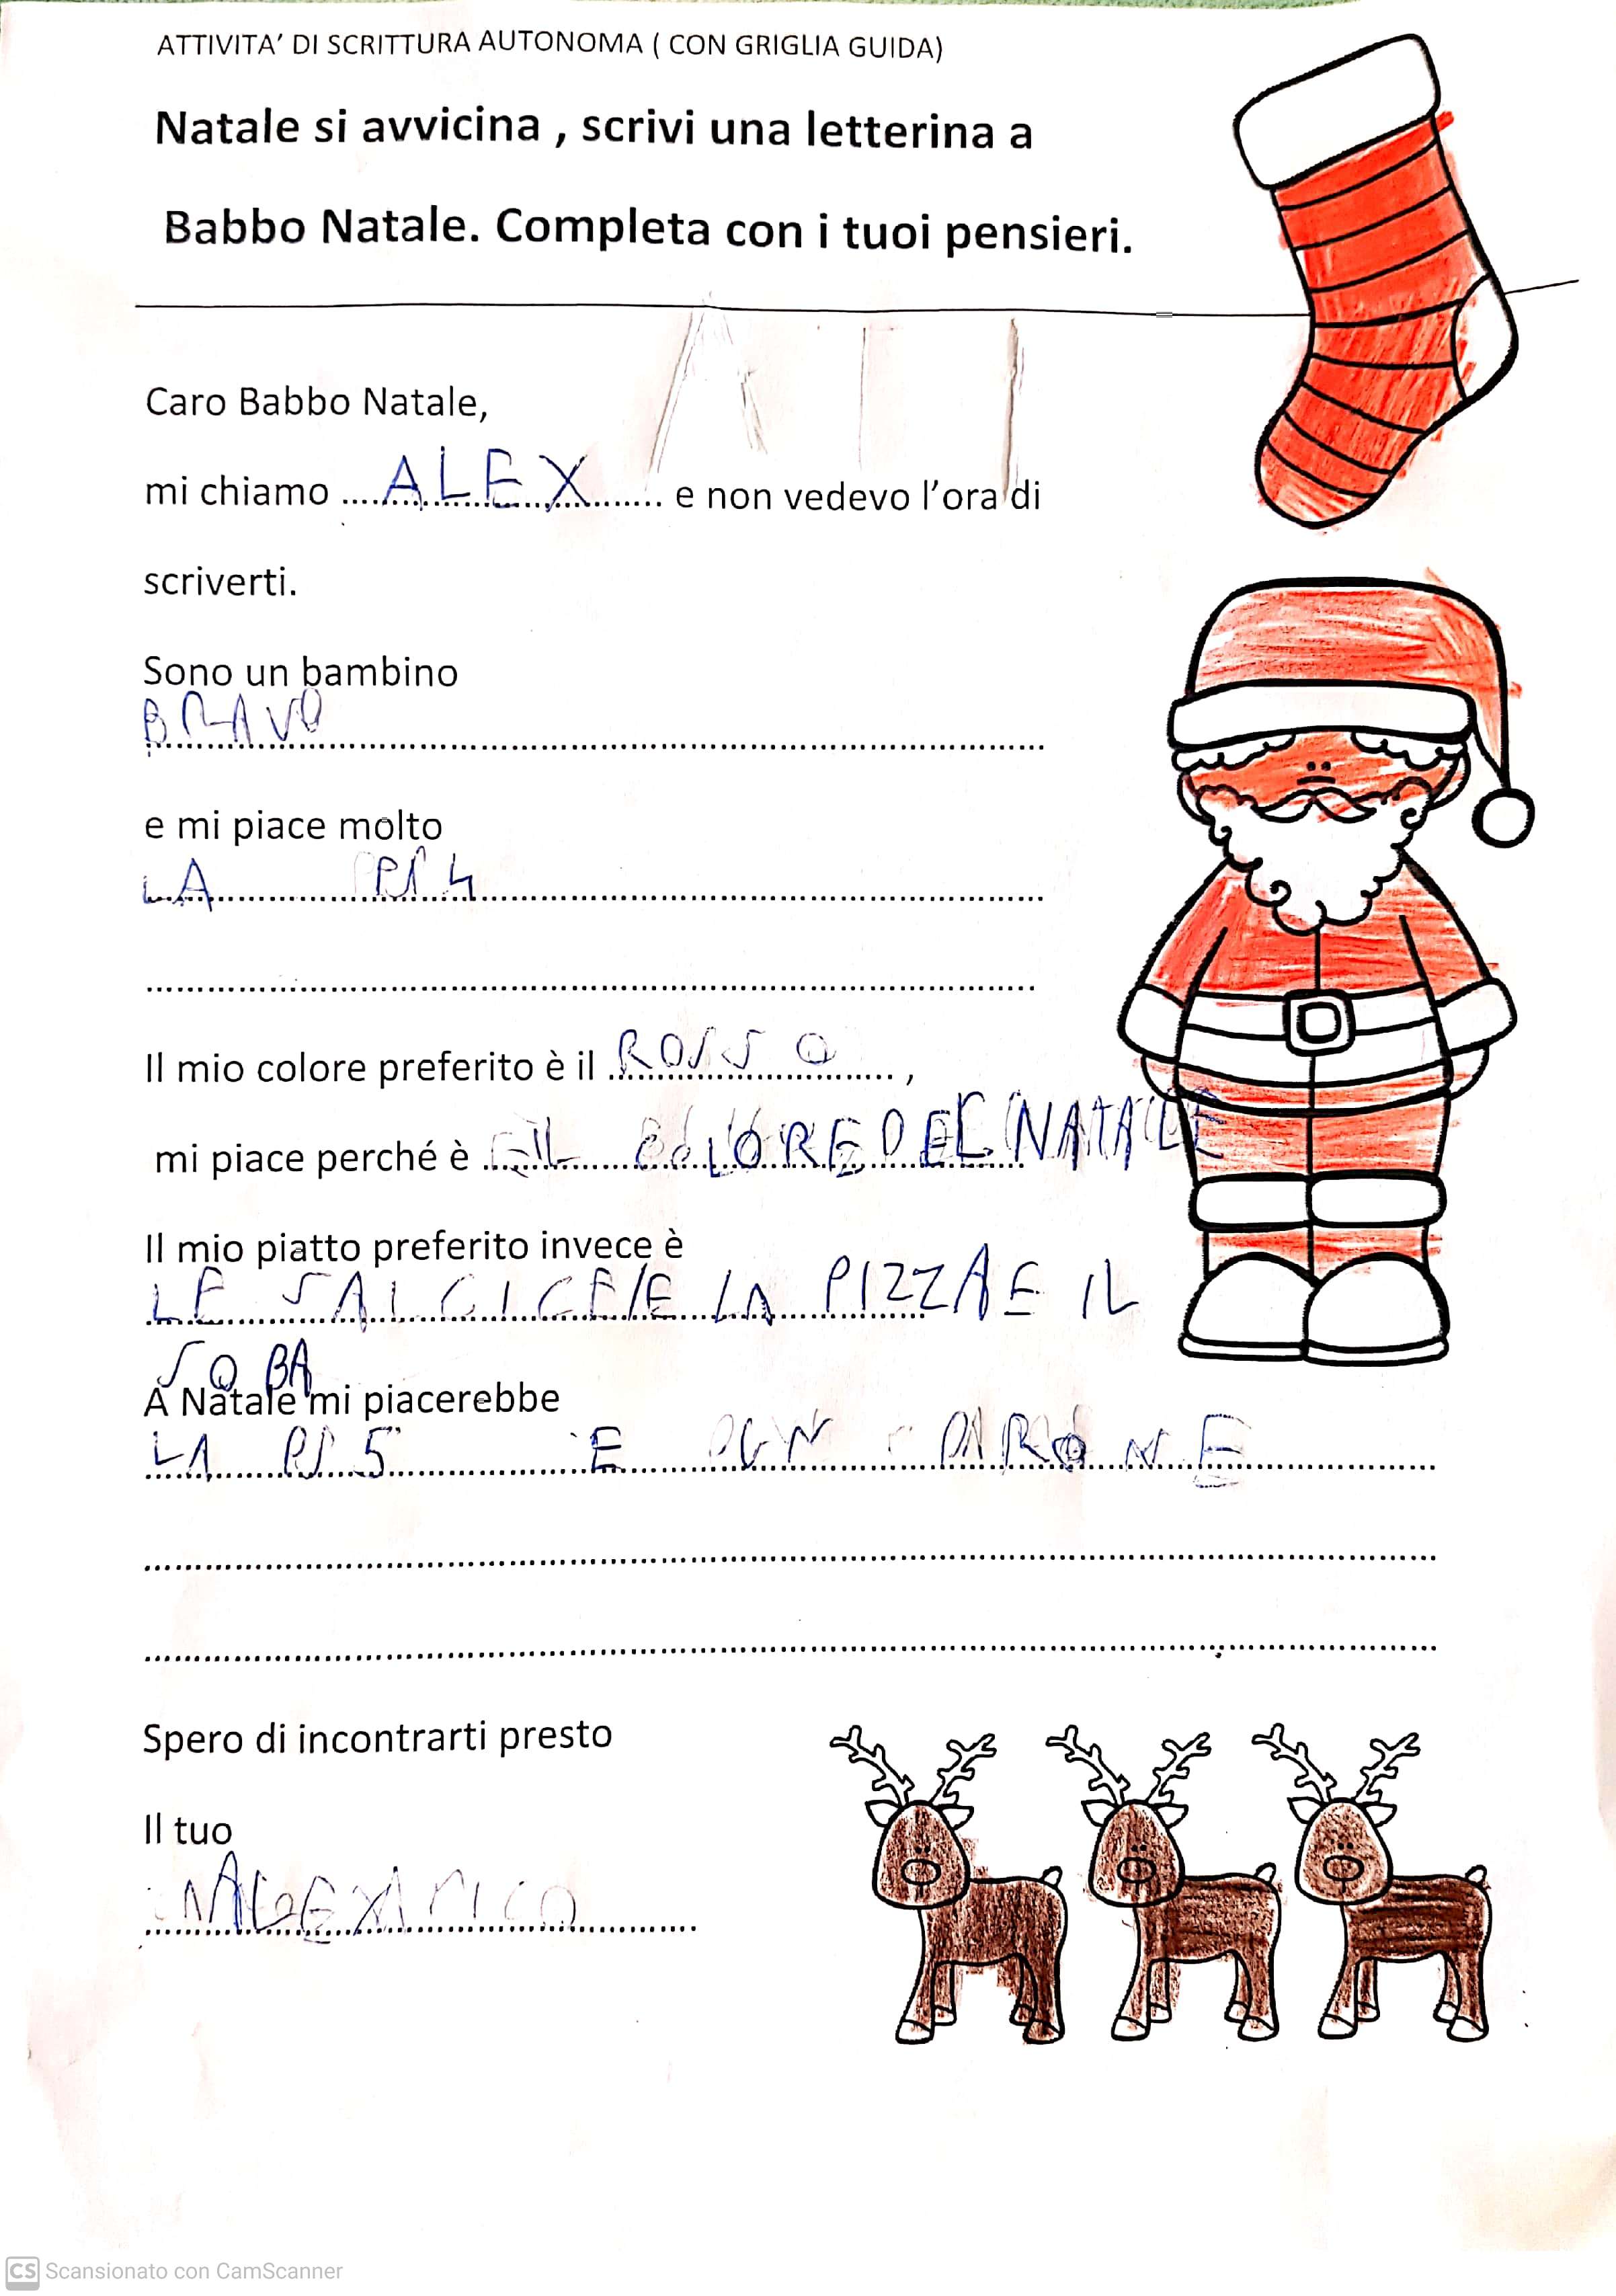 ATTIVITA' DI SCRITTURA AUTONOMA ( CON GRIGLIA GUIDA)
Natale si avvicina , scrivi una letterina a
Babbo Natale. Completa con i tuoi pensieri.
Caro Babbo Natale,
mi chiamo ALEX e non vedevo l'ora di
scriverti.
Sono un bambino
BRAVO
e mi piace molto
LA PS4
Il mio colore preferito è il ROSSO ,
mi piace perché è IL COLORE DEL NATALE
Il mio piatto preferito invece è
LE SALCICE E LA PIZZA E IL
A Natale mi piacerebbe
LA PS5 E
Spero di incontrarti presto
Il tuo
CS Scansionato con CamScanner